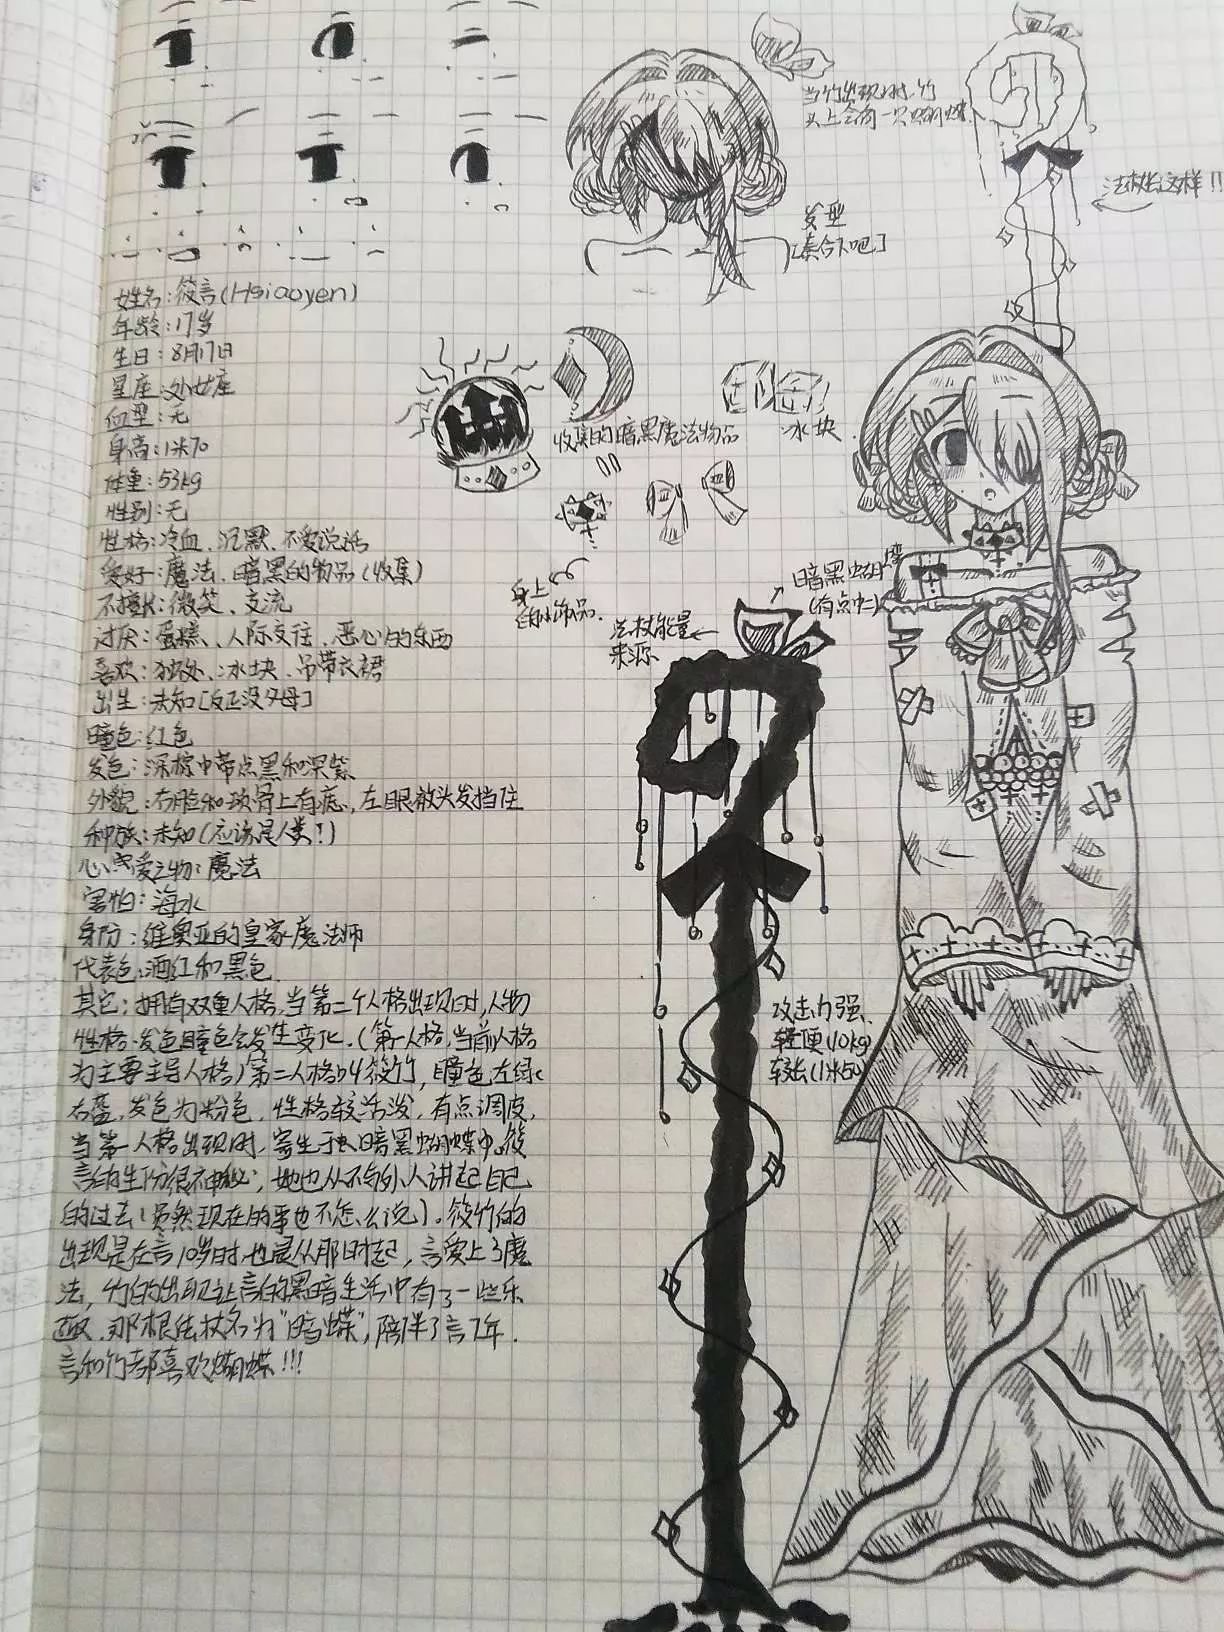 当竹出现时,竹
头上会有一只蝴蝶.
法杖长这样!!
发型
[凑合下吧]
姓名:筱言(Hsiaoyen)
年龄:17岁
生日:8月17日
星座:处女座
血型:无
身高:1米70
体重:53kg
性别:无
性格:冷血、沉默、不爱说话
爱好:魔法、暗黑的物品(收集)
不擅长:微笑、交流
讨厌:蛋糕、人际交往、恶心的东西
喜欢:独处、冰块、吊带衣裙
出生:未知[反正没父母]
瞳色:红色
发色:深棕中带点黑和深紫
外貌:右脸和锁骨上有痣,左眼被头发挡住
种族:未知(应该是人类!)
心爱之物:魔法
害怕:海水
身份:维奥亚的皇家魔法师
代表色:酒红和黑色
其它:拥有双重人格,当第二个人格出现时,人物
性格、发色瞳色会发生变化.(第一人格,当前人格
为主要主导人格)第二人格叫筱竹,瞳色左绿
右蓝,发色为粉色,性格较活泼,有点调皮,
当第一人格出现时,寄生于暗黑蝴蝶中。筱
言的身份很神秘,她也从不与外人讲起自己
的过去(虽然现在的事也不怎么说)。筱竹的
出现是在言10岁时,也是从那时起,言爱上了魔
法,竹的出现让言的黑暗生活中有了一些乐
趣.那根法杖名为"暗蝶",陪伴了言7年.
言和竹都喜欢蝴蝶!!!
收集的暗黑魔法物品
冰块
身上
的小饰品
暗黑蝴蝶
(有点忙)
法杖能量
来源
攻击力强、
轻便(10kg)
较长(1米50)